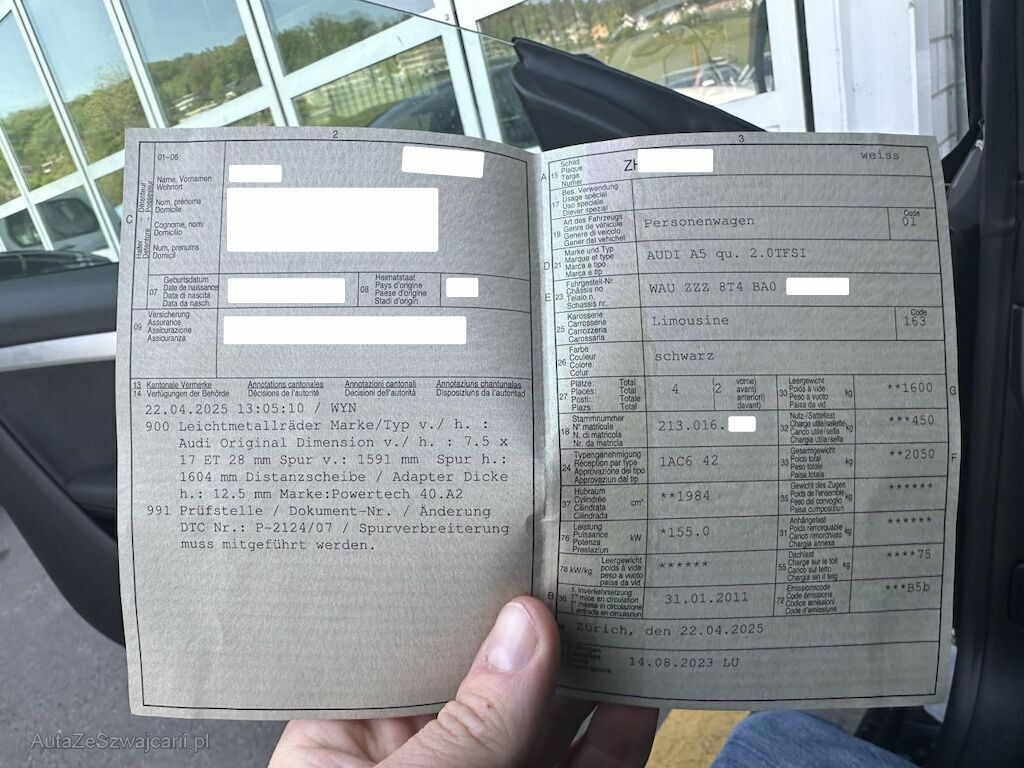 2
01-06
C
Halter
Détenteur
Detentore
Possessur
Name, Vornamen
Wohnort
Nom, prénoms
Domicile
Cognome, nomi
Domicilio
Num, prenums
Domicil
07 Geburtsdatum
Date de naissance
Data di nascita
Data da nasch.
08 Heimatstaat
Pays d'origine
Paese d'origine
Stadi d'origin
09 Versicherung
Assurance
Assicurazione
Assicuranza
13
14
Kantonale Vermerke Annotations cantonales Annotazioni cantonali Annotaziuns chantunalas
Verfügungen der Behörde Décisions de l'autorité Decisioni dell'autorità Disposiziuns da l'autoritad
22.04.2025 13:05:10 / WYN
900 Leichtmetallräder Marke/Typ v./ h. :
Audi Original Dimension v./ h. : 7.5 x
17 ET 28 mm Spur v.: 1591 mm Spur h.:
1604 mm Distanzscheibe / Adapter Dicke
h.: 12.5 mm Marke:Powertech 40.A2
991 Prüfstelle / Dokument-Nr. / Änderung
DTC Nr.: P-2124/07 / Spurverbreiterung
muss mitgeführt werden.
3
A 15 Schild
Plaque
Targa
Numer
ZH
weiss
17 Bes. Verwendung
Usage spécial
Uso speciale
Diever spezial
19 Art des Fahrzeugs
Genre de véhicule
Genere di veicolo
Gener dal vehichel
Personenwagen
Code
01
D 21 Marke und Typ
Marque et type
Marca e tipo
Marca e tip
AUDI A5 qu. 2.0TFSI
E 23 Fahrgestell-Nr.
Châssis no
Telaio n.
Schassis nr.
WAU ZZZ 8T4 BA0
25 Karosserie
Carrosserie
Carrozzeria
Carossaria
Limousine
Code
163
26 Farbe
Couleur
Colore
Colur
schwarz
27 Plätze: Total
Places: Total
Posti: Totale
Plazs: Total
4 (2 vorne)
avant)
anteriori)
davant)
30 Leergewicht
Poids à vide
Peso a vuoto
Paisa da vid
kg
**1600
G
18 Stammnummer
N° matricule
N. di matricola
Nr. da matricla
213.016.
32 Nutz-/Sattellast
Charge utile/sellette
Carico utile/sella
Chargia utile/sella
kg
***450
24 Typengenehmigung
Réception par type
Approvazione del tipo
Approvaziun dal tip
1AC6 42
33 Gesamtgewicht
Poids total
Peso totale
Paisa totala
kg
**2050
F
37 Hubraum
Cylindrée
Cilindrata
Cilindrada
cm³
**1984
35 Gewicht des Zuges
Poids de l'ensemble
Peso del convoglio
Paisa cumposiziun
kg
******
76 Leistung
Puissance
Potenza
Prestaziun
kW
*155.0
31 Anhängelast
Poids remorquable
Carico rimorchiato
Chargia annexa
kg
******
78 kW/kg Leergewicht
poids à vide
peso a vuoto
paisa da vid
******
55 Dachlast
Charge sur le toit
Carico sul tetto
Chargia sin il tetg
kg
****75
B 36 1. Inverkehrsetzung
1re mise en circulation
1a messa in circolazione
1. entrada en circulaziun
31.01.2011
72 Emissionscode
Code émissions
Codice emissioni
Code d'emissiuns
***B5b
Zürich, den 22.04.2025
14.08.2023 LU
AutaZeSzwajcarii.pl